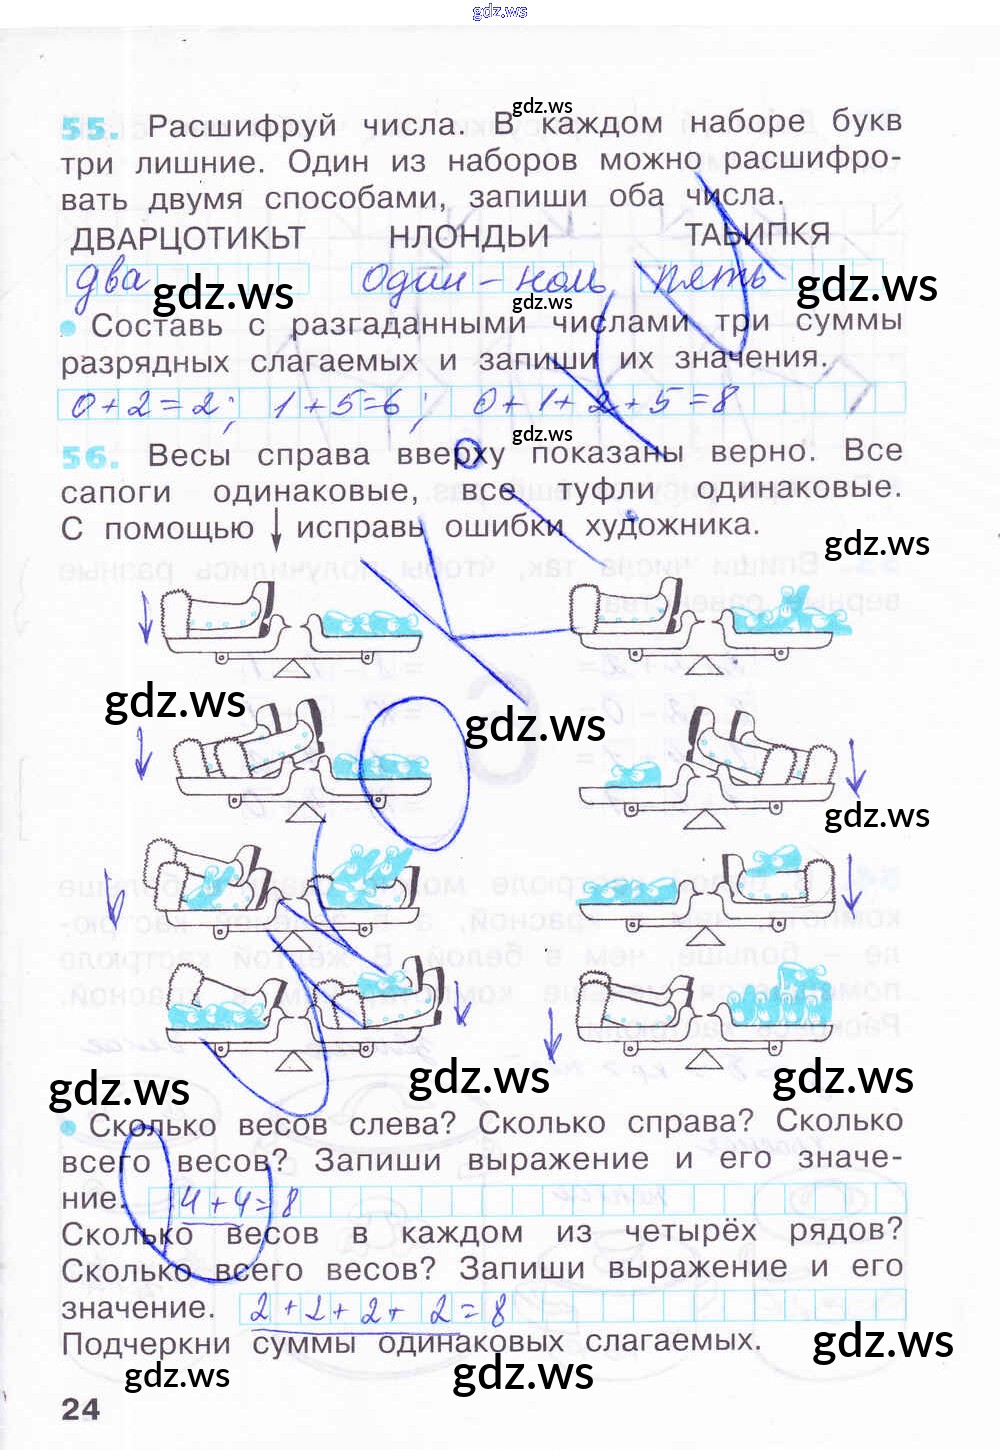 gdz.ws
gdz.ws
55. Расшифруй числа. В каждом наборе букв
три лишние. Один из наборов можно расшифро-
вать двумя способами, запиши оба числа.
ДВАРЦОТИКЬТ НЛОНДЬИ ТАЬИПКЯ
два один - ноль пять
gdz.ws gdz.ws gdz.ws
Составь с разгаданными числами три суммы
разрядных слагаемых и запиши их значения.
0+2=2; 1+5=6; 0+1+2+5=8
gdz.ws
56. Весы справа вверху показаны верно. Все
сапоги одинаковые, все туфли одинаковые.
С помощью ↓ исправь ошибки художника.
gdz.ws
gdz.ws
gdz.ws
gdz.ws
gdz.ws gdz.ws gdz.ws
Сколько весов слева? Сколько справа? Сколько
всего весов? Запиши выражение и его значе-
ние. 4+4=8
Сколько весов в каждом из четырёх рядов?
Сколько всего весов? Запиши выражение и его
значение. 2+2+2+2=8
Подчеркни суммы одинаковых слагаемых.
gdz.ws gdz.ws gdz.ws
24